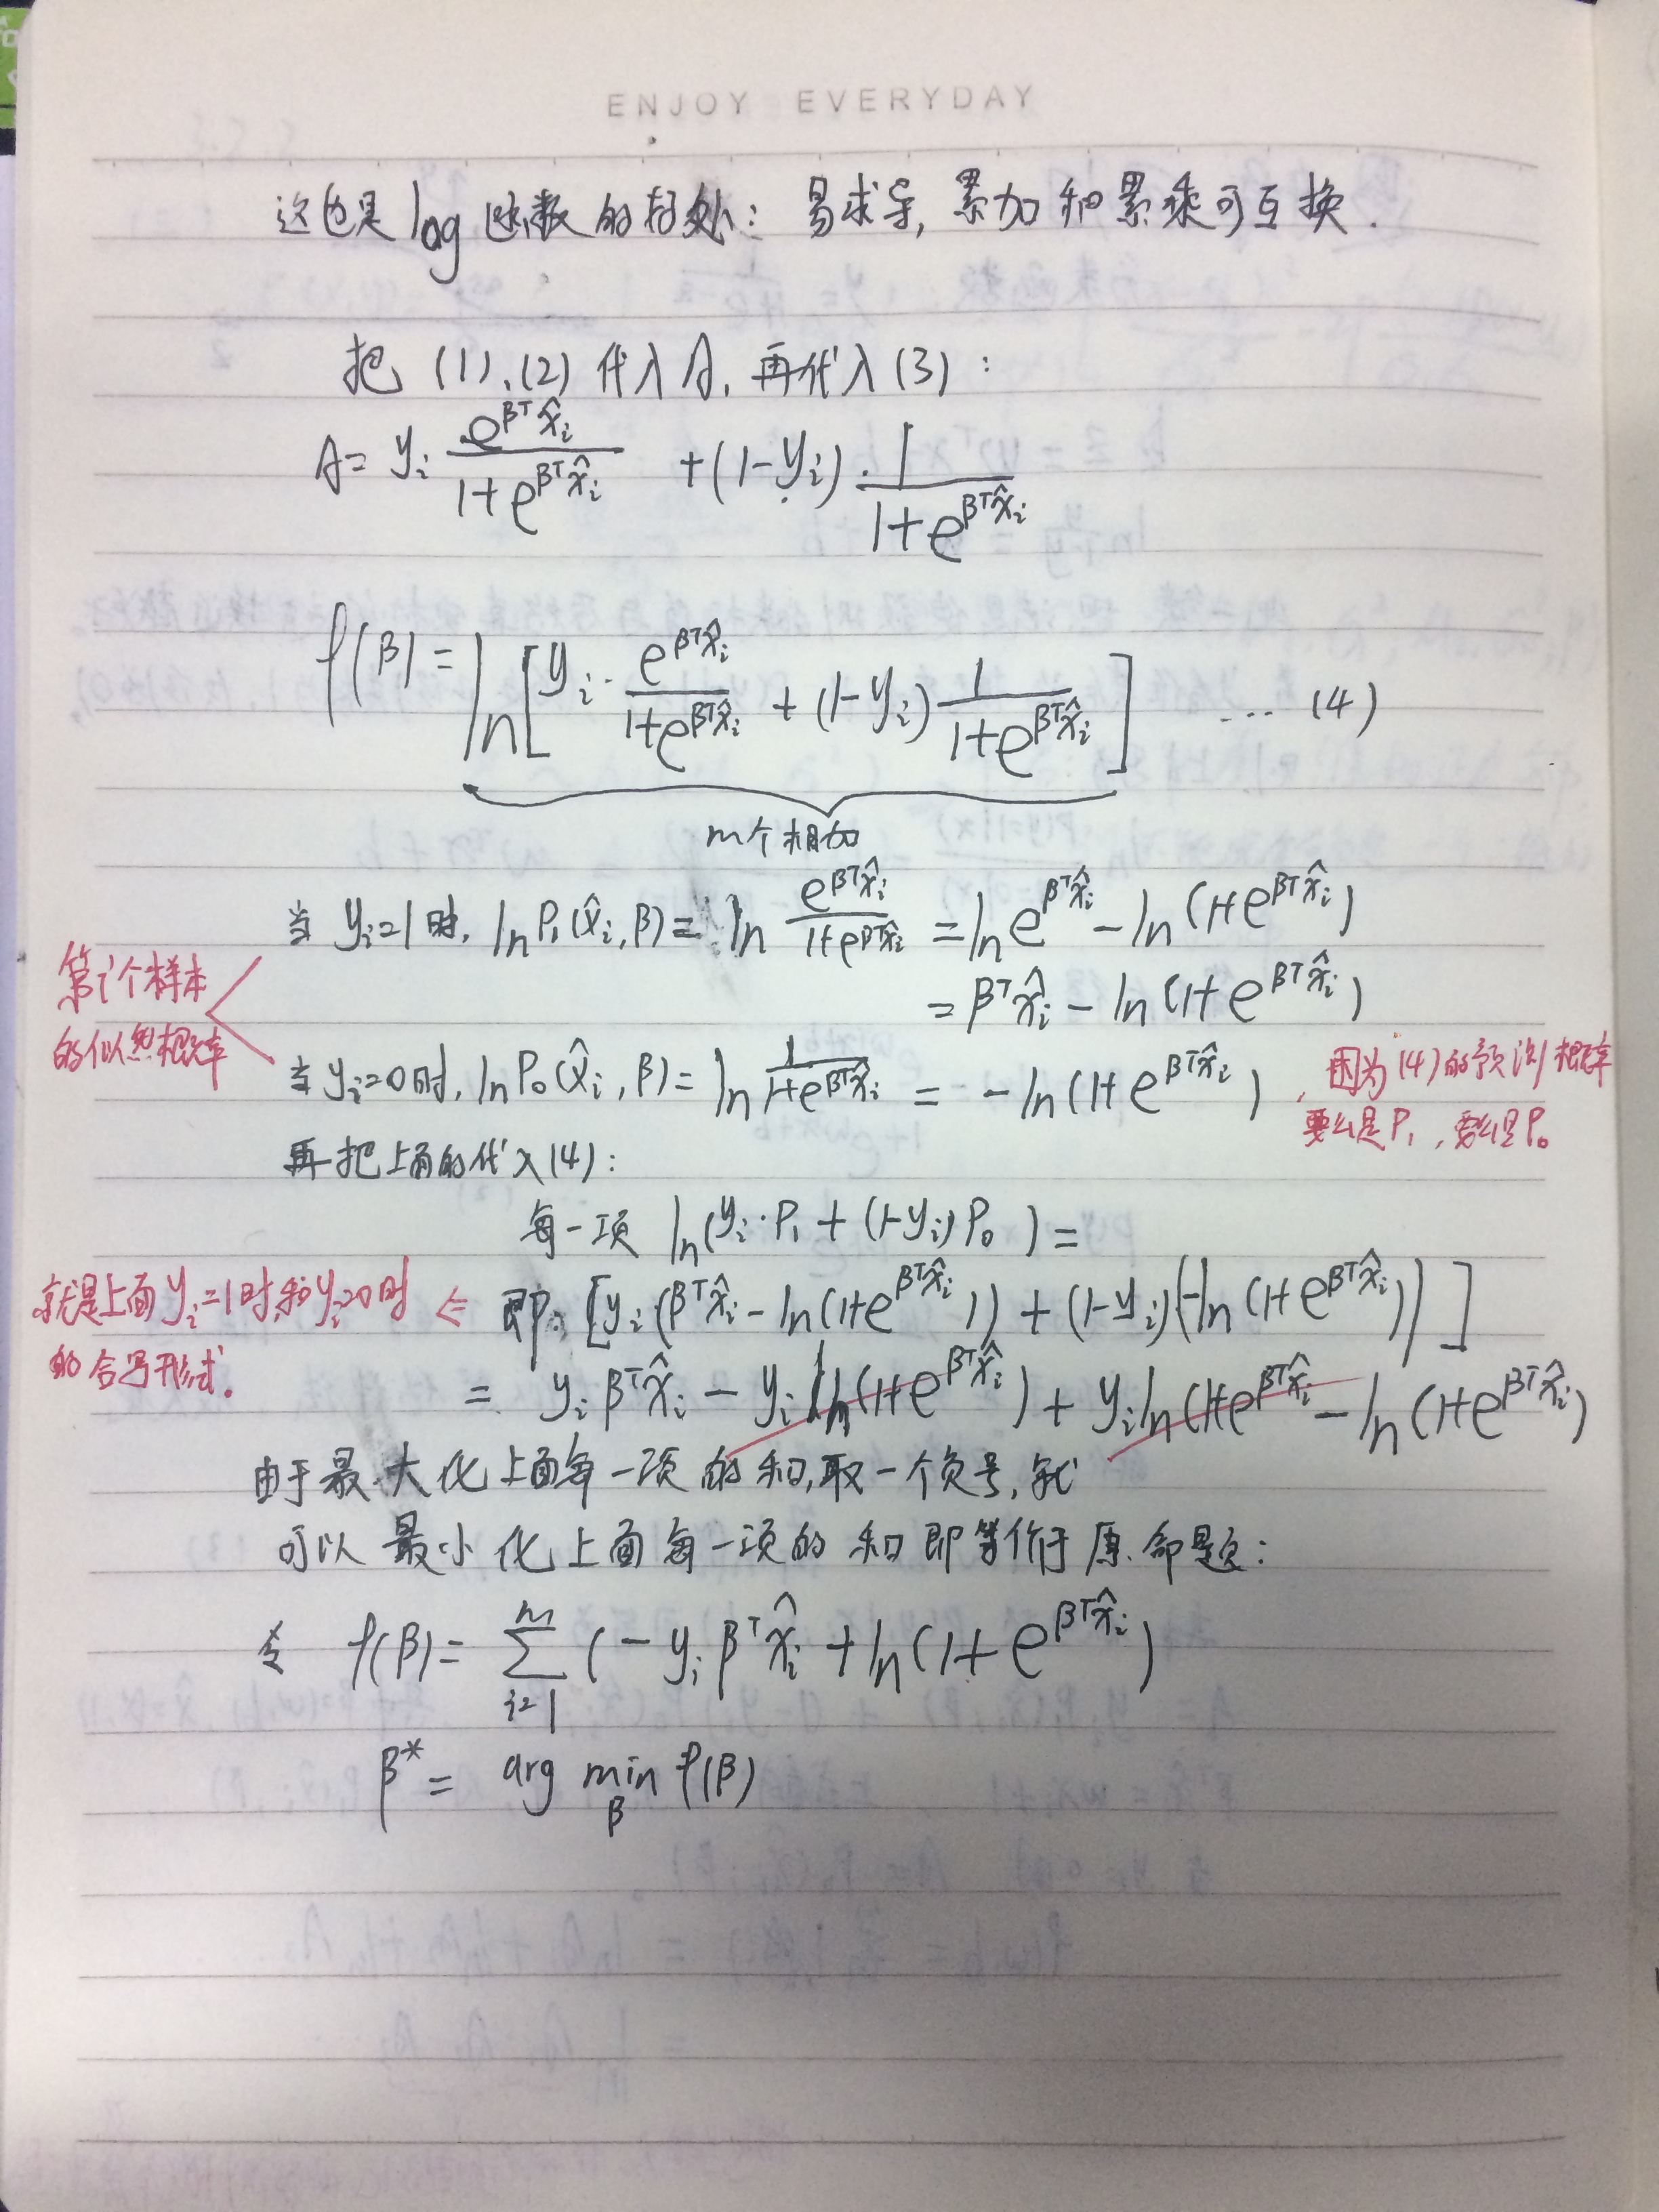 ENJOY EVERYDAY
这也是log函数的好处: 易求导, 累加和累乘可互换.
把 (1), (2) 代入A, 再代入(3):
A = y_i \frac{e^{β^T \hat{x}_i}}{1+e^{β^T \hat{x}_i}} + (1-y_i) · \frac{1}{1+e^{β^T \hat{x}_i}}
f(β) = ln[y_i · \frac{e^{β^T \hat{x}_i}}{1+e^{β^T \hat{x}_i}} + (1-y_i) \frac{1}{1+e^{β^T \hat{x}_i}}] ... (4)
m个相加
当 y_i=1时, ln P_1(\hat{x}_i, β) = ln \frac{e^{β^T \hat{x}_i}}{1+e^{β^T \hat{x}_i}} = ln e^{β^T \hat{x}_i} - ln(1+e^{β^T \hat{x}_i})
= β^T \hat{x}_i - ln(1+e^{β^T \hat{x}_i})
第i个样本
的似然概率
当 y_i=0时, ln P_0(\hat{x}_i, β) = ln \frac{1}{1+e^{β^T \hat{x}_i}} = -ln(1+e^{β^T \hat{x}_i})
, 因为(4)的预测概率
要么是P_1, 要么是P_0
再把上面的代入(4):
每一项 ln(y_i · P_1 + (1-y_i)P_0) =
就是上面y_i=1时和y_i=0时
的合写形式.
⇐ 即: [y_i(β^T \hat{x}_i - ln(1+e^{β^T \hat{x}_i})) + (1-y_i)(-ln(1+e^{β^T \hat{x}_i}))]
= y_i β^T \hat{x}_i - y_i ln(1+e^{β^T \hat{x}_i}) + y_i ln(1+e^{β^T \hat{x}_i} - ln(1+e^{β^T \hat{x}_i})
由于最大化上面每一项的和, 取一个负号, 就
可以最小化上面每一项的和即等价于原命题:
令 f(β) = \sum_{i=1}^{m} (-y_i β^T \hat{x}_i + ln(1+e^{β^T \hat{x}_i})
β^* = arg min_β f(β)